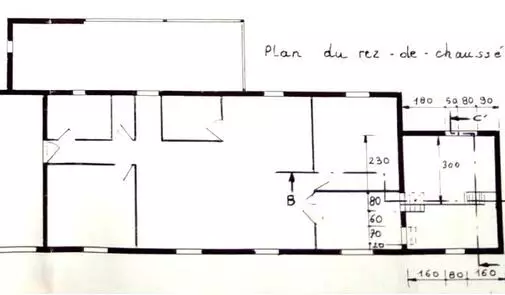 Plan du rez-de-chaussé
180 50 80 90
C'
230
300
B
80
60
70
20
160 80 160